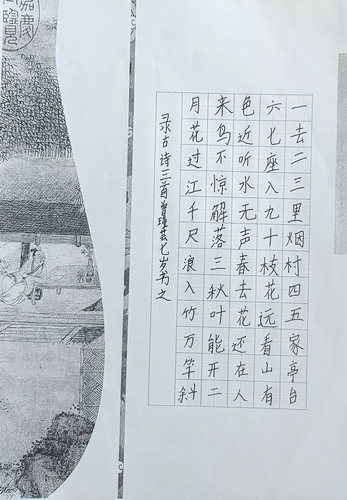 一去二三里烟村四五家亭台
六七座八九十枝花远看山有
色近听水无声春去花还在人
来鸟不惊解落三秋叶能开二
月花过江千尺浪入竹万竿斜
录古诗三首曾芸七岁书之